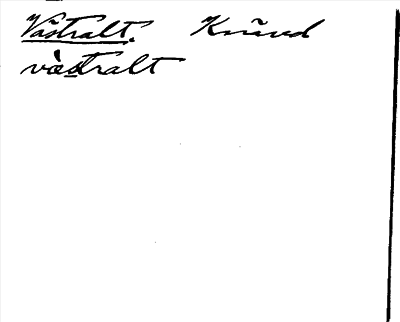 Västralt. Knäred
västralt